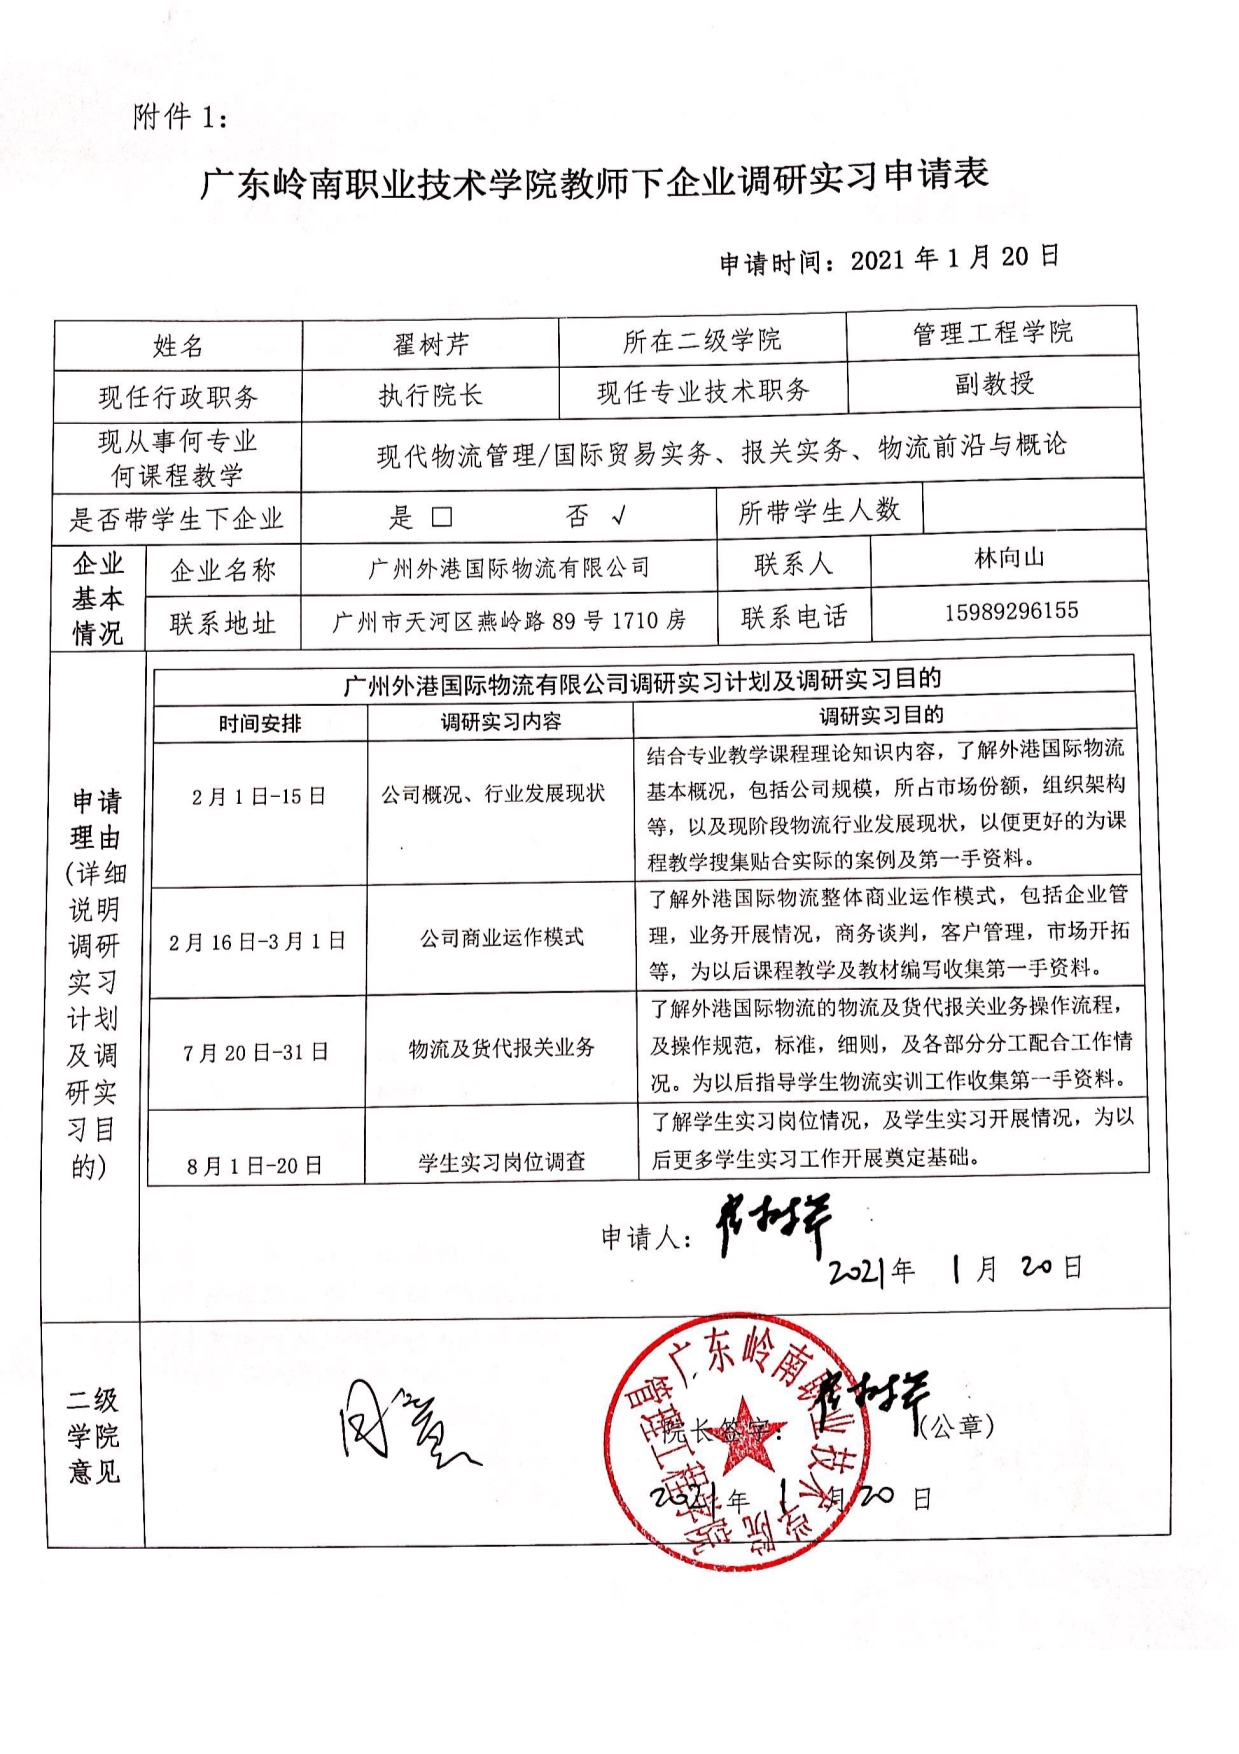 附件 1：
广东岭南职业技术学院教师下企业调研实习申请表
申请时间：2021 年 1 月 20 日
姓名 翟树芹 所在二级学院 管理工程学院
现任行政职务 执行院长 现任专业技术职务 副教授
现从事何专业
何课程教学
现代物流管理/国际贸易实务、报关实务、物流前沿与概论
是否带学生下企业 是 □ 否 √ 所带学生人数
企业
基本
情况
企业名称 广州外港国际物流有限公司 联系人 林向山
联系地址 广州市天河区燕岭路 89 号 1710 房 联系电话 15989296155
申请
理由
（详细
说明
调研
实习
计划
及调
研实
习目
的）
广州外港国际物流有限公司调研实习计划及调研实习目的
时间安排 调研实习内容 调研实习目的
2 月 1 日-15 日 公司概况、行业发展现状
结合专业教学课程理论知识内容，了解外港国际物流
基本概况，包括公司规模，所占市场份额，组织架构
等，以及现阶段物流行业发展现状，以便更好的为课
程教学搜集贴合实际的案例及第一手资料。
2 月 16 日-3 月 1 日 公司商业运作模式
了解外港国际物流整体商业运作模式，包括企业管
理，业务开展情况，商务谈判，客户管理，市场开拓
等，为以后课程教学及教材编写收集第一手资料。
7 月 20 日-31 日 物流及货代报关业务
了解外港国际物流的物流及货代报关业务操作流程，
及操作规范，标准，细则，及各部分分工配合工作情
况。为以后指导学生物流实训工作收集第一手资料。
8 月 1 日-20 日 学生实习岗位调查
了解学生实习岗位情况，及学生实习开展情况，为以
后更多学生实习工作开展奠定基础。
申请人：翟树芹
2021年 1 月 20 日
二级
学院
意见
同意
广东岭南职业技术学院
管理工程学院
院长签字：翟树芹（公章）
2021年 1 月 20 日